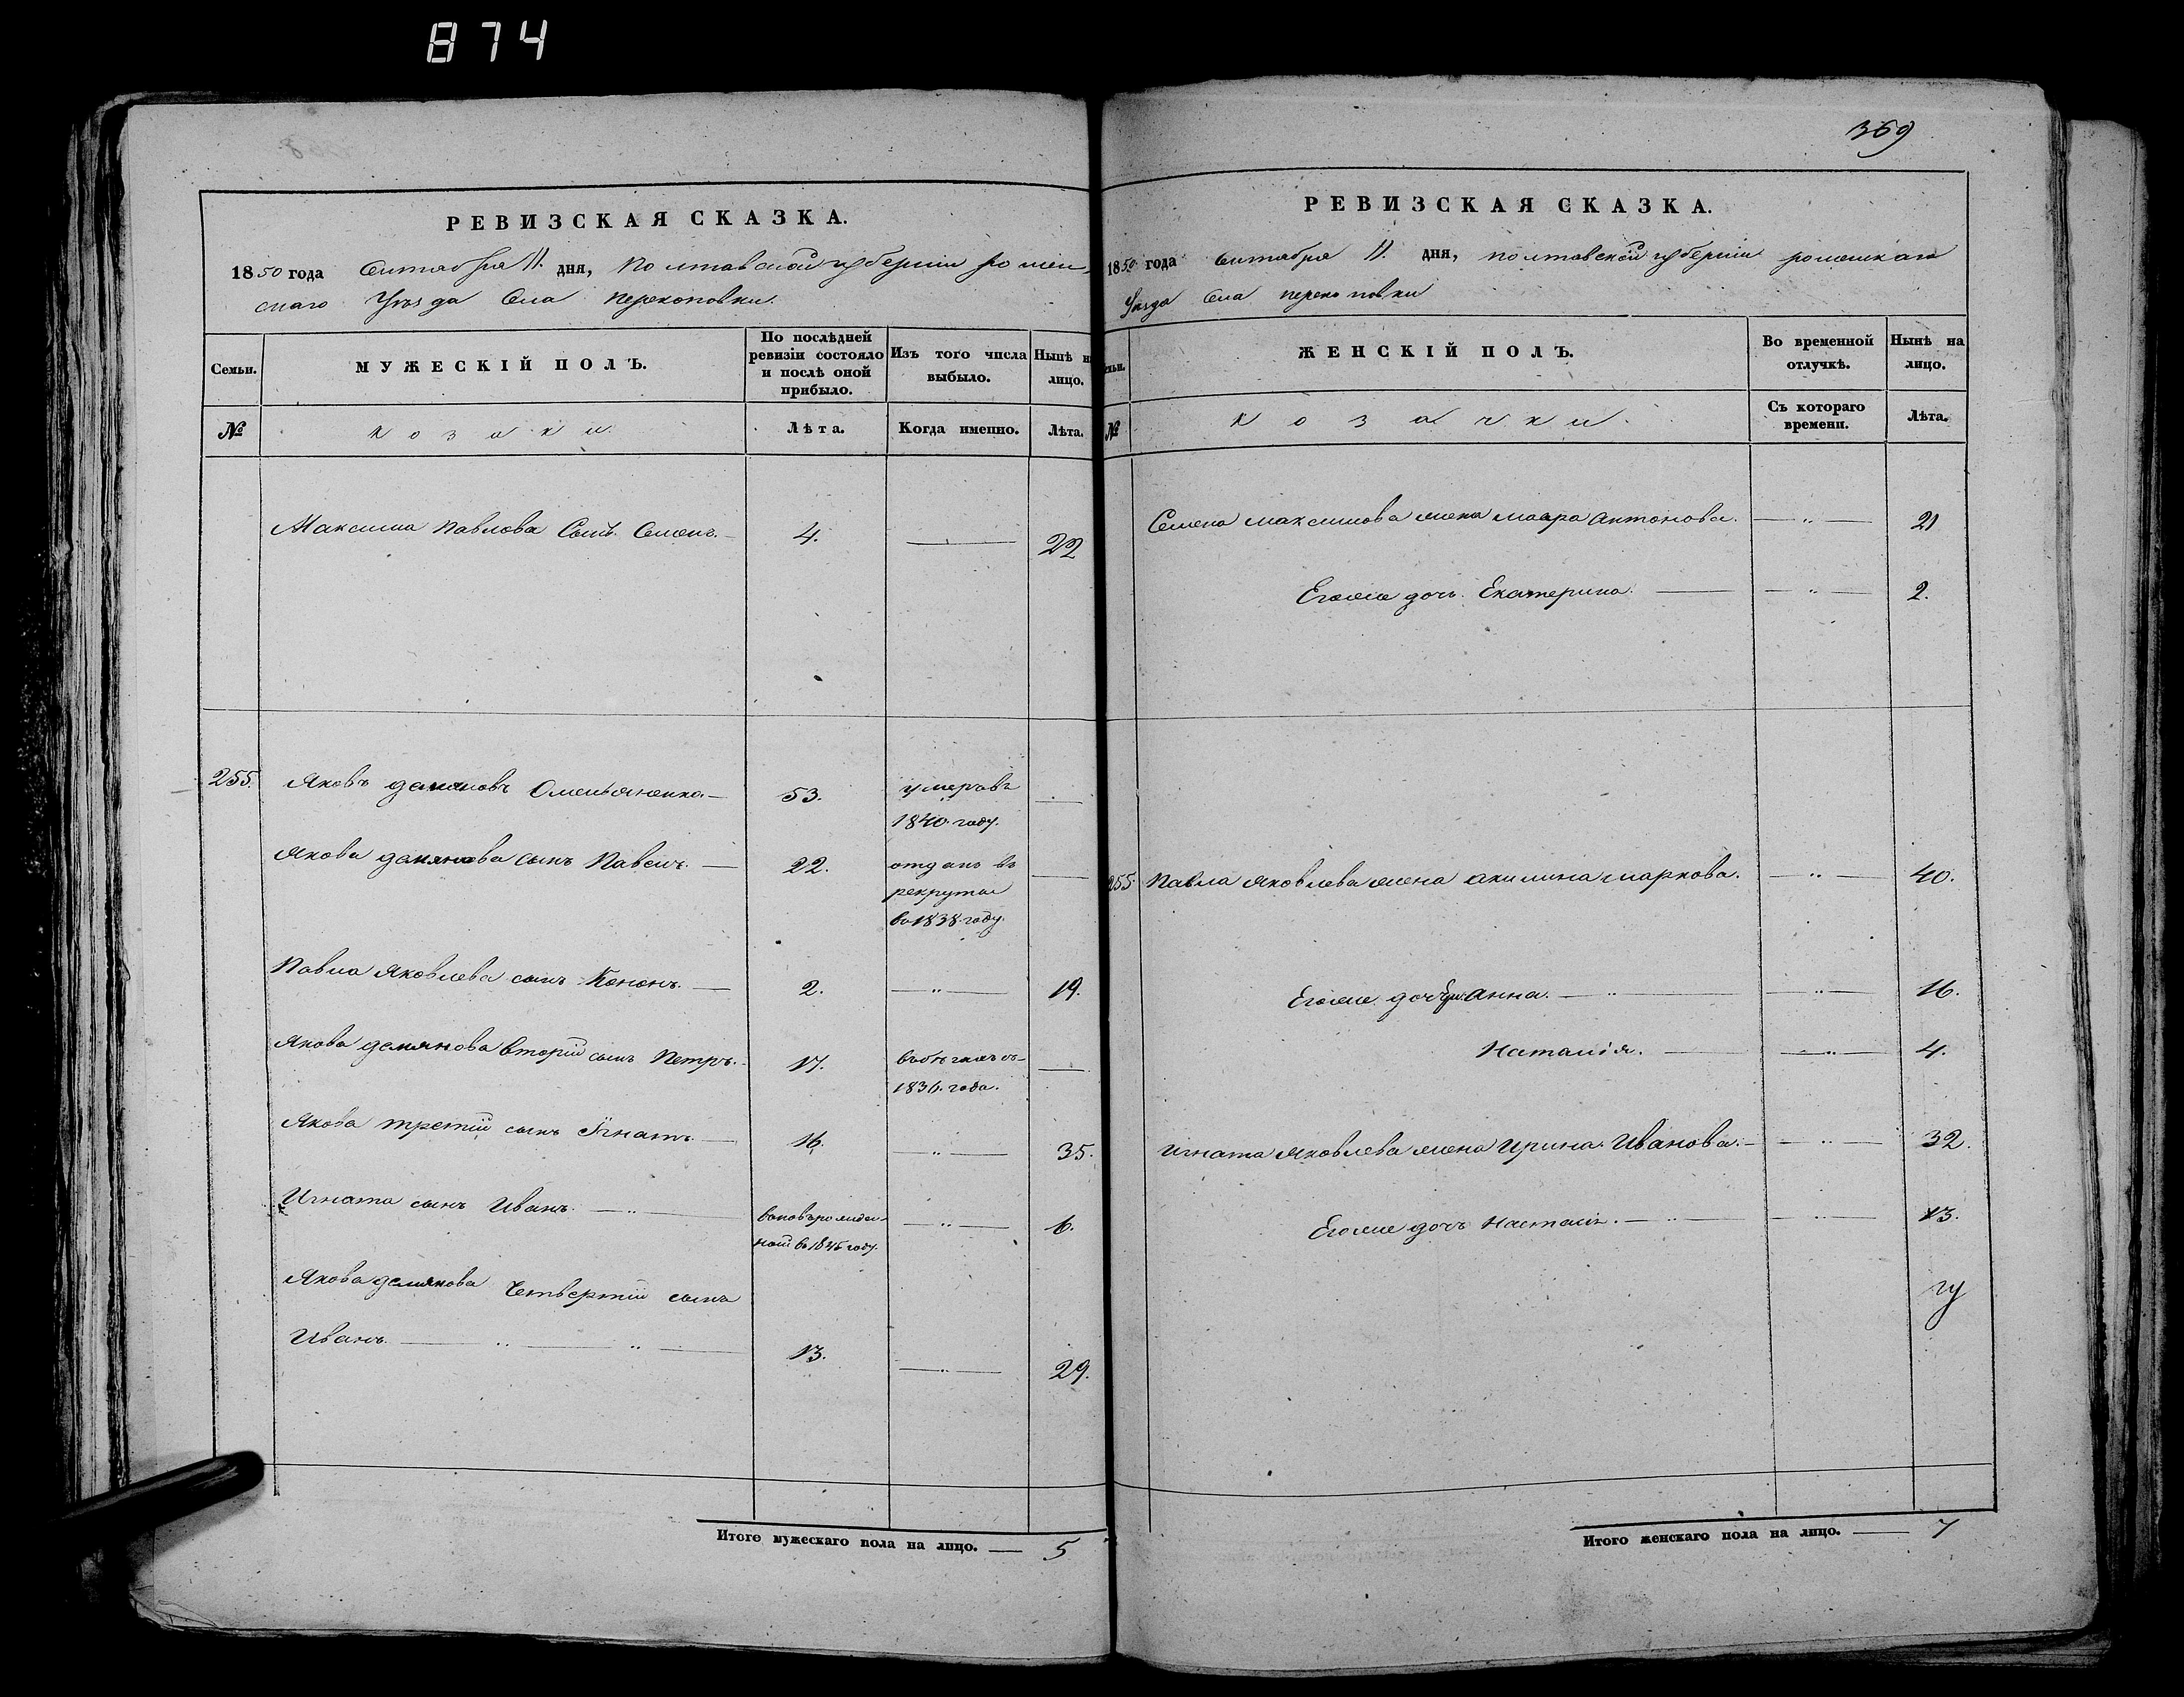 874
РЕВИЗСКАЯ СКАЗКА.
1850 года Сентября 11. дня, Полтавской губерніи ромен
скаго Уезда Села перекоповки.
Семьи.
МУЖЕСКІЙ ПОЛЪ.
По послѣдней ревизіи состояло и послѣ оной прибыло.
Изъ того числа выбыло.
Нынѣ н лицо.
№
козаки.
Лѣта.
Когда именно.
Лѣта.
Максима Павлова Сынъ Семенъ. 4. 22
255. Яковъ демяновъ Омельяненко. 53. умеръ въ
1840. году.
Якова демянова сынъ Павелъ. 22. отданъ въ
рекруты
въ 1838. году.
Павла Яковлева сынъ Кононъ. 2. „ 19.
Якова демянова вторій сынъ Петръ. 17. въ бѣгахъ съ
1836. года.
Якова третій сынъ Игнатъ. 16. „ 35.
Игната сынъ Иванъ. „ вновьрожден-
ной въ 1845 году. „ 6.
Якова демянова Четвертій сынъ
Иванъ. „ „ 13. „ 29.
Итого мужескаго пола на лицо. 5
369
РЕВИЗСКАЯ СКАЗКА.
1850 года Сентября 11. дня, полтавской губерніи роменскаго
Уезда Села перекоповки
ЖЕНСКІЙ ПОЛЪ.
Во временной отлучкѣ.
Нынѣ на лицо.
№
козачки.
Съ котораго времени.
Лѣта.
Семена максимова жена мавра антонова. „ 21
Егоже дочь Екатерина. „ 2.
255. Павла Яковлева жена акилина маркова. „ 40.
Егоже дочери Анна. „ „ 16.
Наталія. „ 4.
Игната Яковлева жена Ирина Иванова. „ 32.
Егоже дочь Наталія. „ „ 13.
Итого женскаго пола на лицо. 7